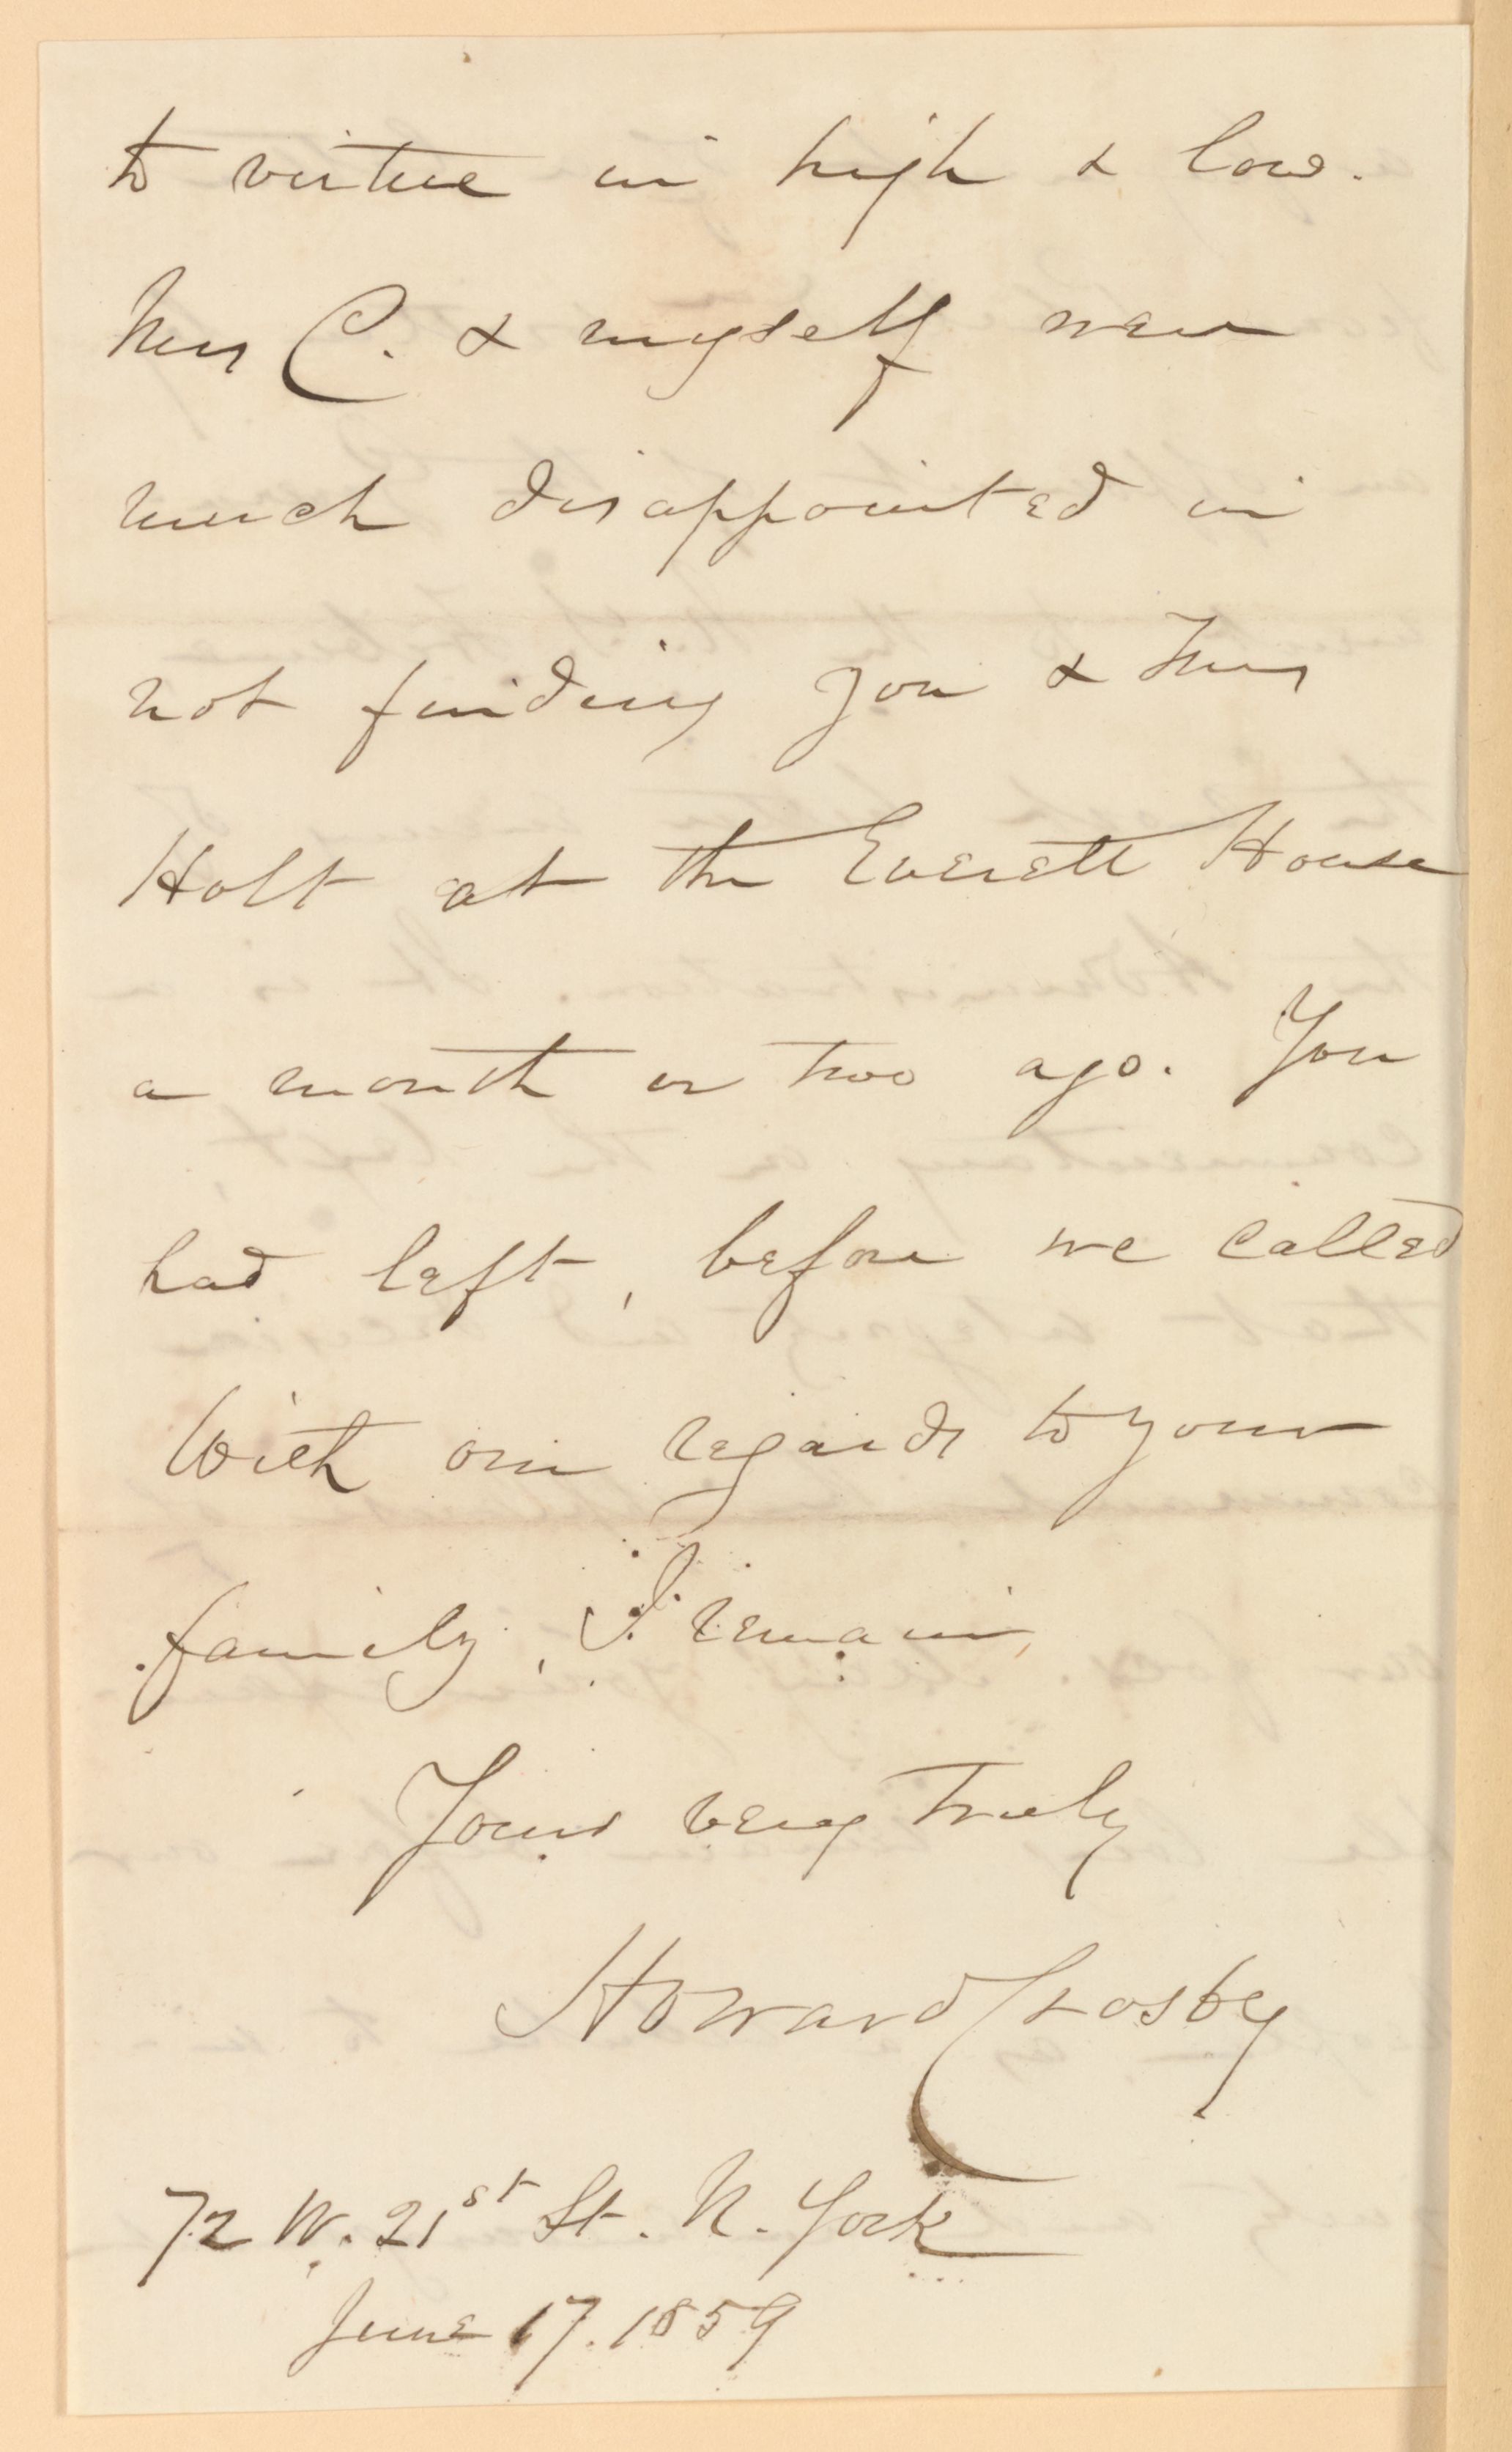 to virtue in high & low.
Mrs C. & myself were
much disappointed in
not finding you & Mrs
Holt at the Everett House
a month or two ago. You
had left, before we called
With our regards to your
family, I remain,
Yours very truly
Howard Crosby
72 W. 21st St. N. York
June 17. 1859